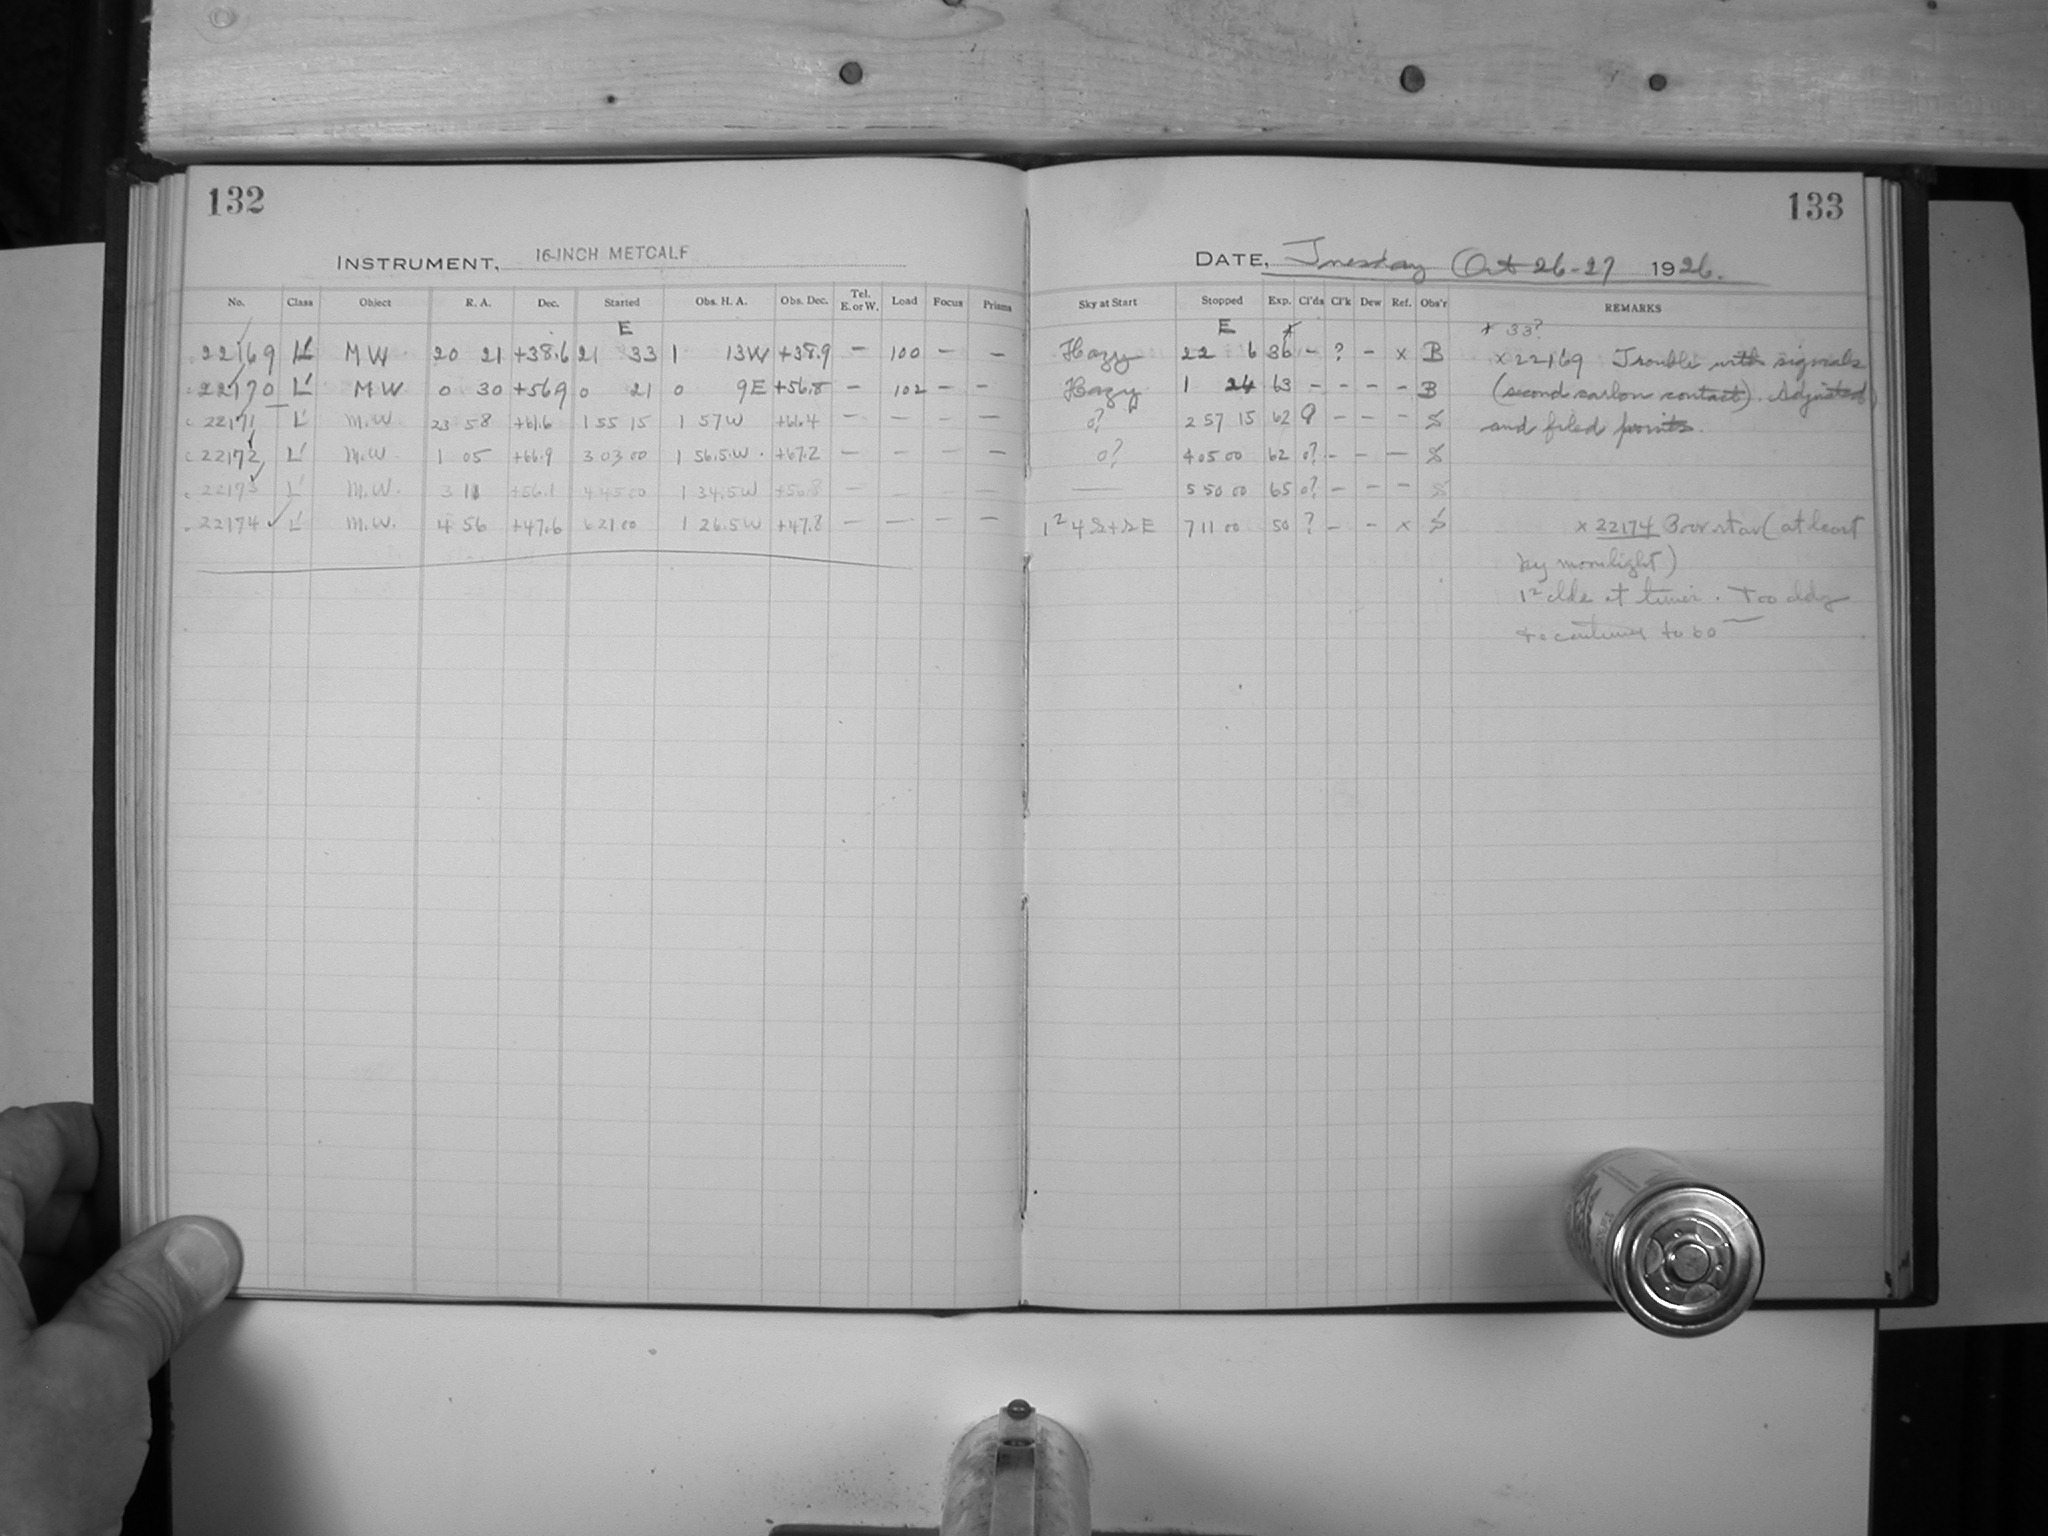 132
INSTRUMENT, 16-INCH METCALF
No. Class Object R. A. Dec. Started Obs. H. A. Obs. Dec. Tel. E. or W. Load Focus Prisms
E
22169 L' MW 20 21 +38.6 21 33 1 13W +38.9 — 100 — —
22170 L' MW 0 30 +56.9 0 21 0 9E +56.8 — 102 — —
22171 L' M.W. 23 58 +61.6 1 55 15 1 57W +61.4 — — — —
22172 L' M.W. 1 05 +66.9 3 03 00 1 56.5W. +67.2 — — — —
22173 L' M.W. 3 11 +56.1 4 45 00 1 34.5W +56.8 — — — —
22174 L' M.W. 4 56 +47.6 6 21 00 1 26.5W +47.8 — — — —
133
DATE, Tuesday Oct 26-27 1926.
Sky at Start Stopped Exp. Cl'ds Cl'k Dew Ref. Obs'r REMARKS
E x x 33?
Hazy 22 6 36 — ? — x B x 22169 Trouble with signals
Hazy 1 24 63 — — — — B (second carbon contact). Adjusted
0? 2 57 15 62 9 — — — S and filed points.
0? 4 05 00 62 0? — — — S
— 5 50 00 65 0? — — — S
1² 4 S+SE 7 11 00 50 ? — — x S x 22174 Poor star (at least
by moonlight)
1² clds at times. Too cldy
to continue to 60